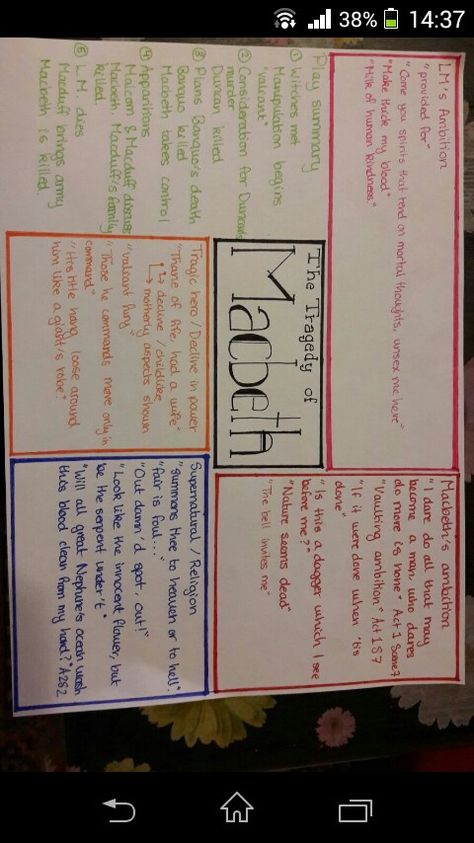 38% 14:37
LM's Ambition
"provided for"
"Come you spirits that tend on mortal thoughts, unsex me here"
"Make thick my blood"
"Milk of human kindness."
Play summary
① Witches met
Manipulation begins
"valiant"
② Consideration for Duncans
murder
Duncan killed
③ Plans Banquo's death
Banquo killed
Macbeth takes control
④ Apparitions
Malcom & Macduff discuss
Macbeth Macduff's family
killed.
⑤ L.M. dies
Macduff brings army
Macbeth is killed.
The Tragedy of
Macbeth
Macbeth's ambition
"I dare do all that may
become a man, who dares
do more is none" Act 1 Scene 7
"Vaulting ambition" Act 1 S7
"If it were done when 'tis
done"
"Is this a dagger which I see
before me?"
"Nature seems dead"
"The bell invites me"
Tragic hero / Decline in power
"Thane of fife, had a wife"
decline / childlike
motherly aspects shown
"valiant fury"
"Those he commands move only in
command"
"His title hang loose around
him like a giant's robe."
Supernatural / Religion
"summons thee to heaven or to hell".
"fair is foul..."
"Out damn'd spot, out!"
"Look like the innocent flower, but
be the serpent under't"
"Will all great Neptune's ocean wash
this blood clean from my hand?" A2S2